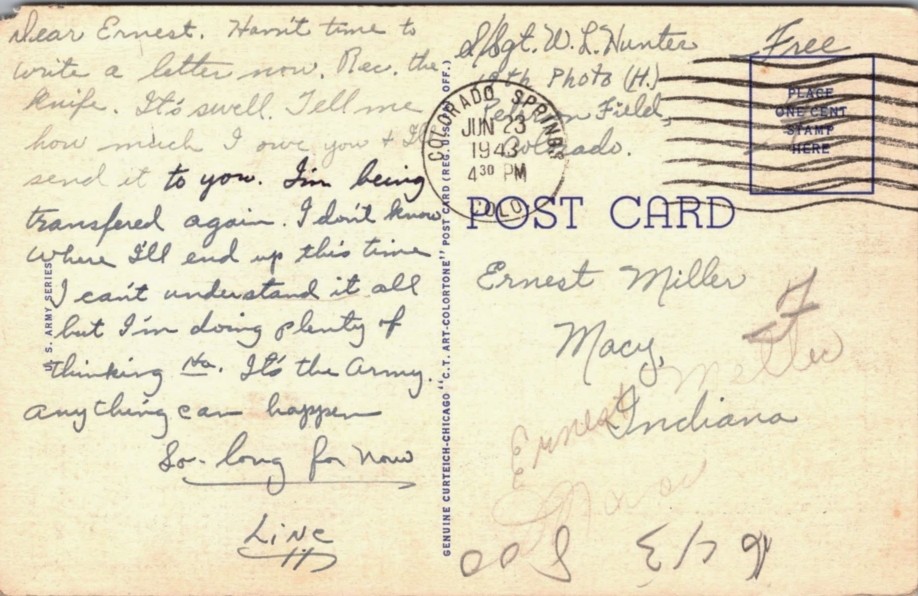 Dear Ernest. Havn't time to
write a letter now. Rec. the
knife. It's swell. Tell me
how much I owe you + I'll
send it to you. I'm being
transfered again. I don't know
where I'll end up this time
I can't understand it all
but I'm doing plenty of
thinking Ha. It's the Army.
anything can happen
So-long for now
Linc
U. S. ARMY SERIES
GENUINE CURTEICH-CHICAGO "C.T. ART-COLORTONE" POST CARD (REG. U.S. OFF.)
S/Sgt. W. L. Hunter
Photo (H.)
Peterson Field,
Colorado.
Free
COLORADO SPRINGS
JUN 23
1943
4 30 PM
COLO.
PLACE
ONE CENT
STAMP
HERE
POST CARD
Ernest Miller
Macy,
Indiana
Ernest Miller